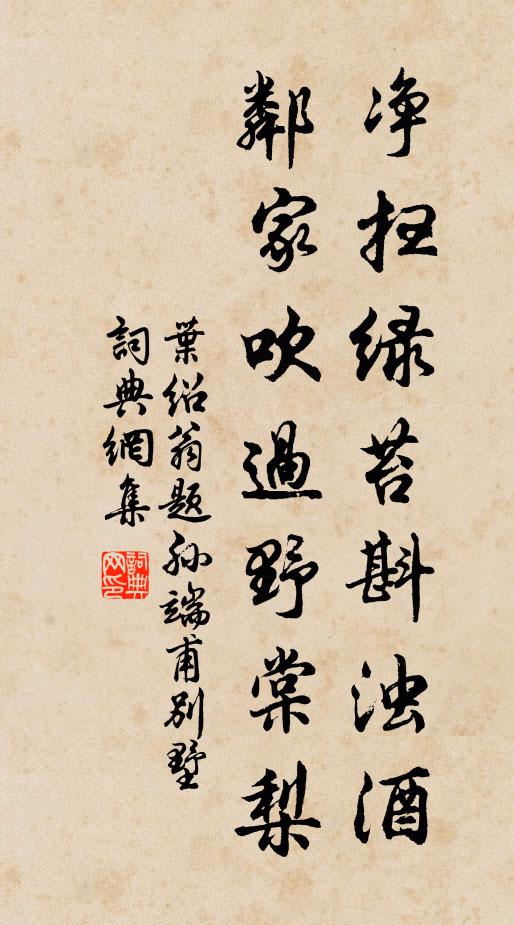 净扫绿苔斟浊酒
鄰家吹過野棠梨
葉绍翁題孙端甫别墅
詞典網集
詞典网印